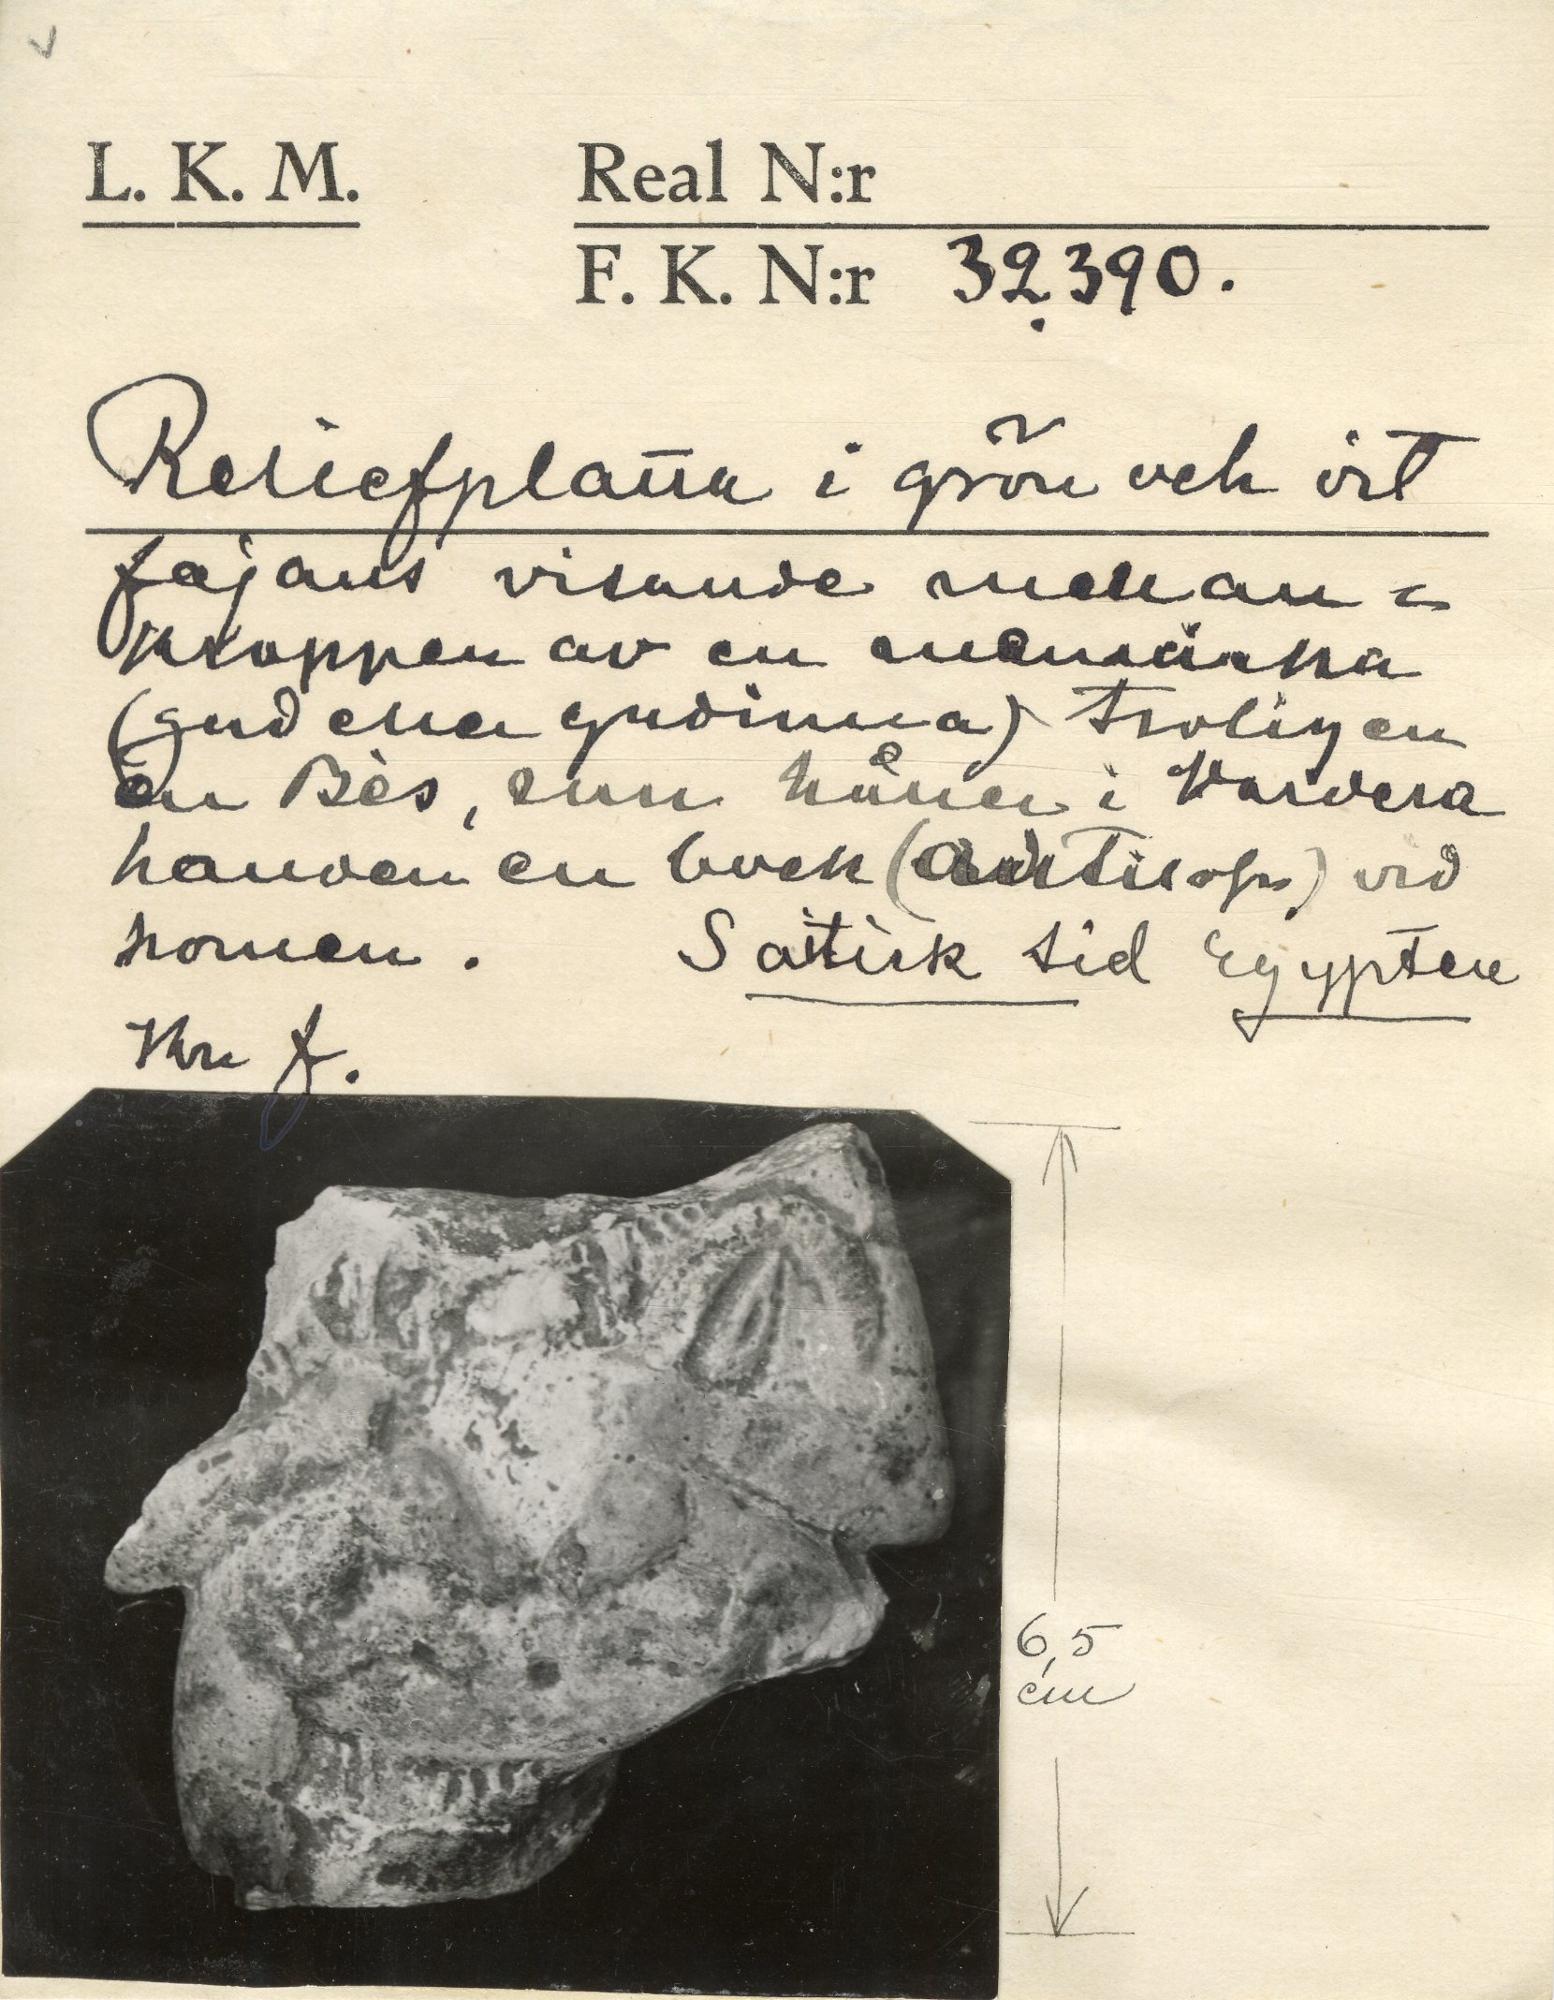 L. K. M. Real N:r
F. K. N:r 32390.
Reliefplatta i grön och vit
fajans visande mellan=
kroppen av en människa
(gud eller gudinna) troligen
en Bès, som håller i vardera
handen en bock (antilop) vid
hornen. Saitisk tid Egypten
6,5
cm